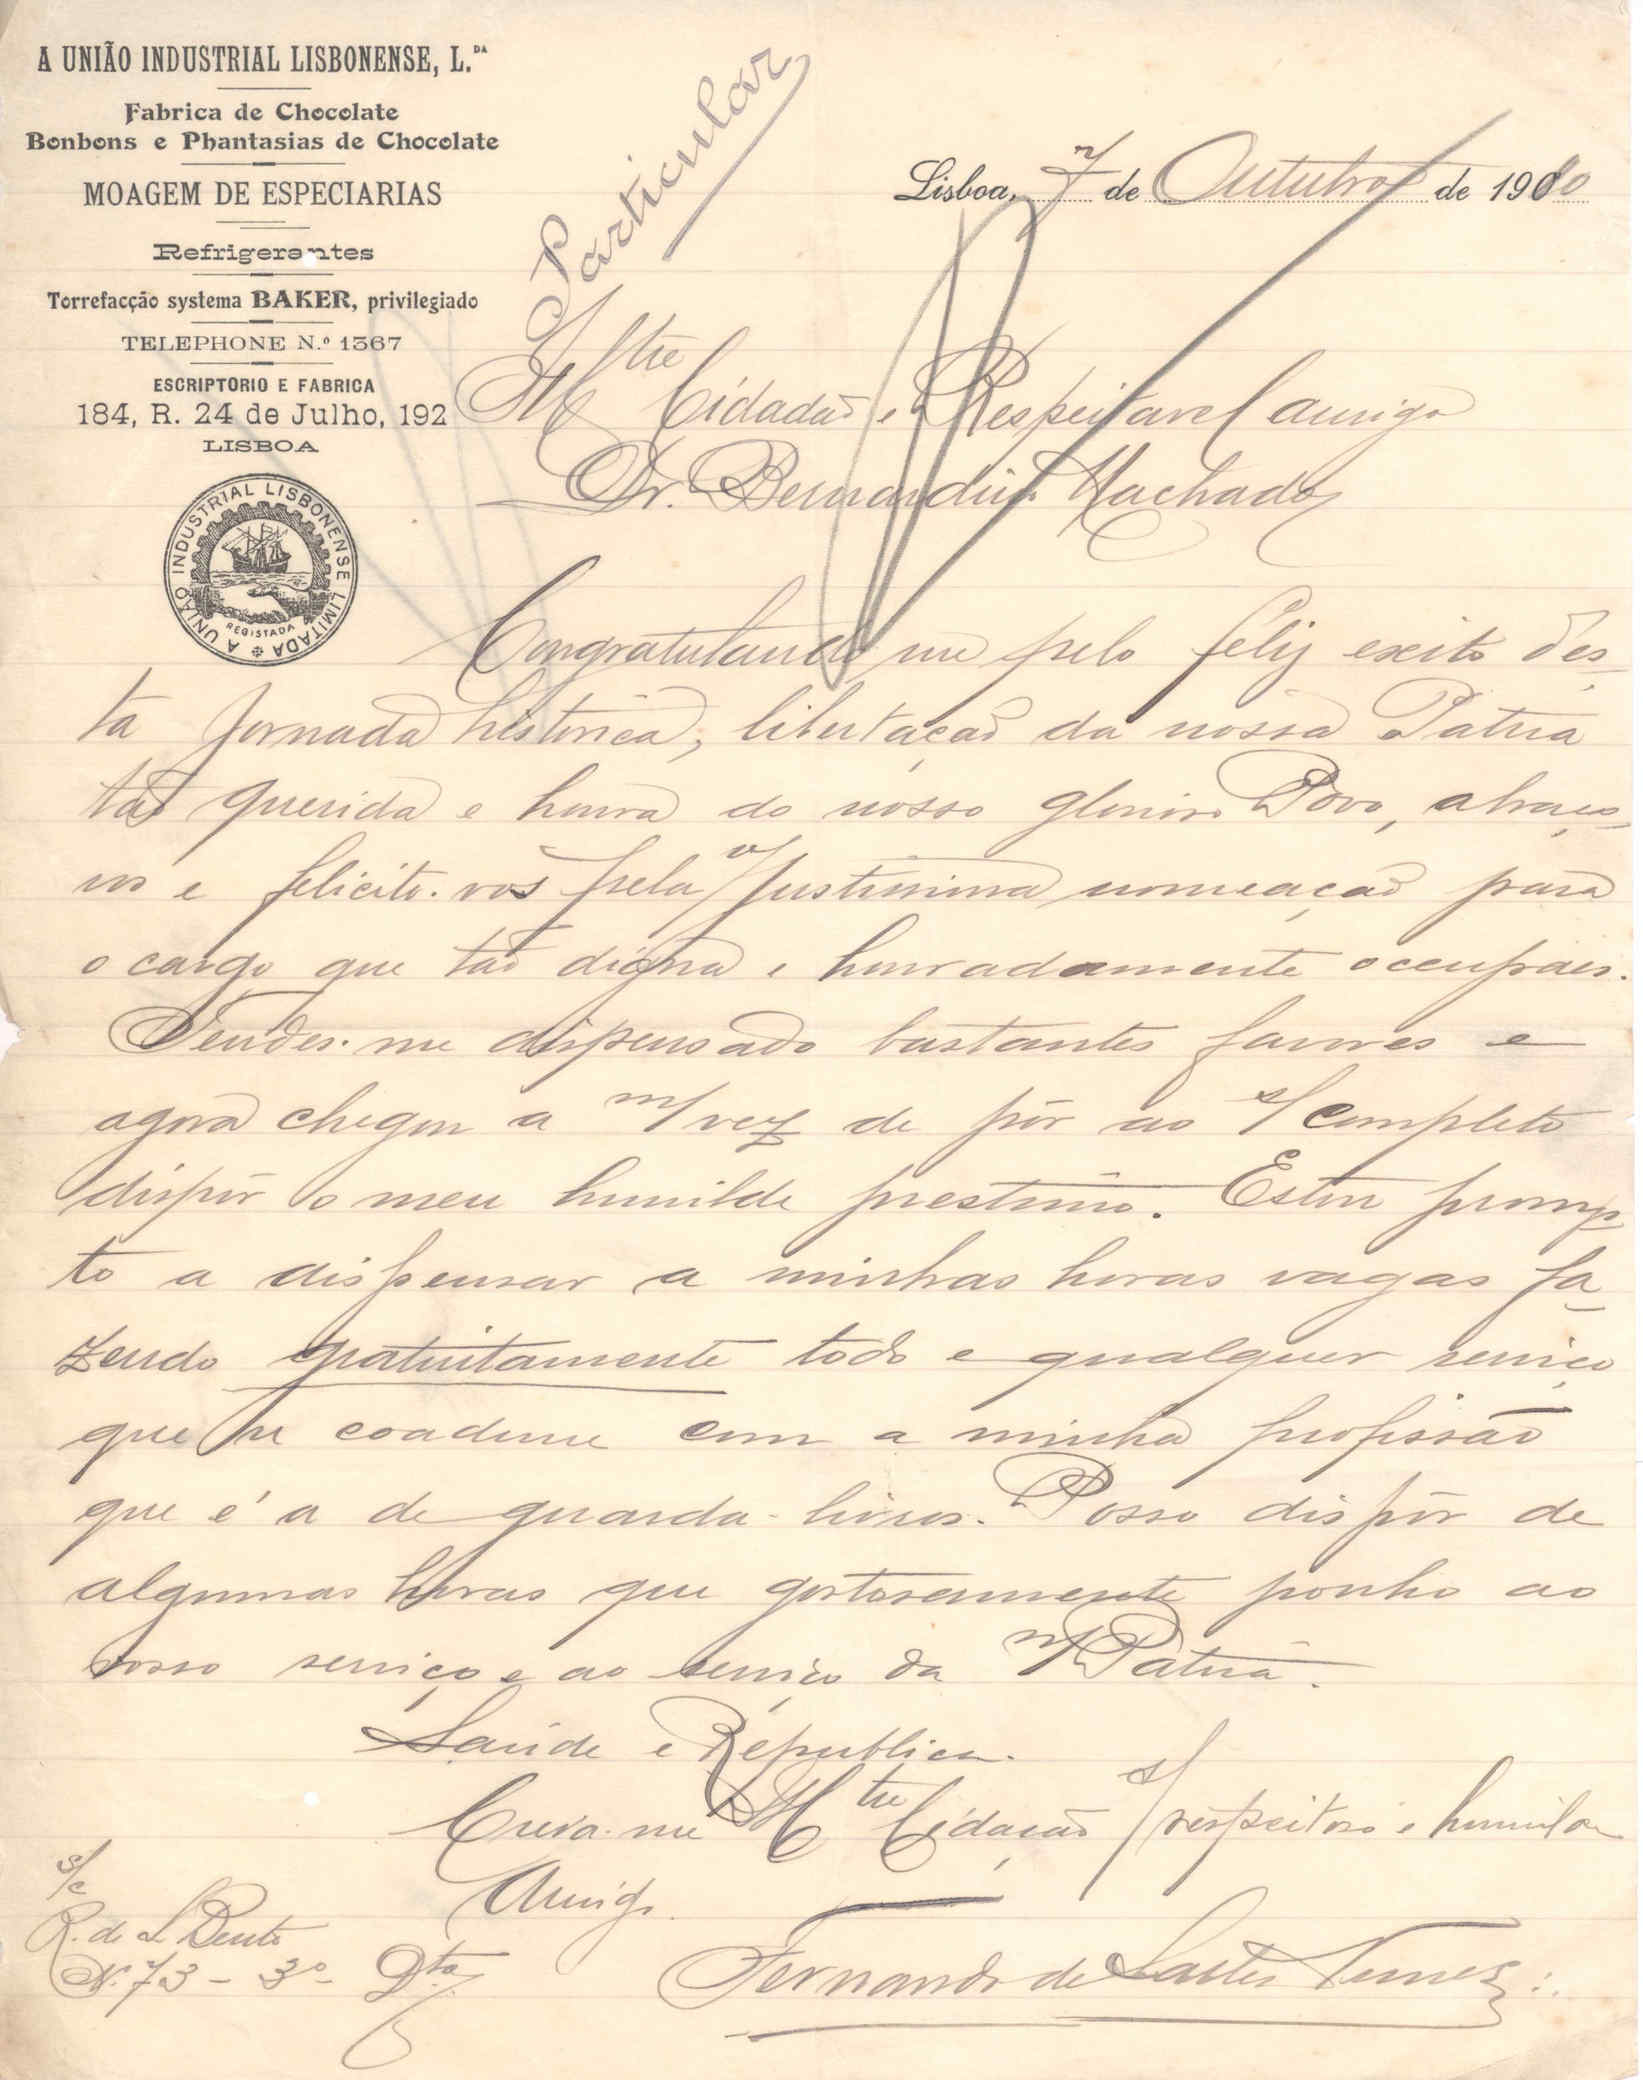 A UNIÃO INDUSTRIAL LISBONENSE, L.DA
Fabrica de Chocolate
Bonbons e Phantasias de Chocolate
MOAGEM DE ESPECIARIAS
Refrigerantes
Torrefacção systema BAKER, privilegiado
TELEPHONE N.º 1367
ESCRIPTORIO E FABRICA
184, R. 24 de Julho, 192
LISBOA
A UNIÃO INDUSTRIAL LISBONENSE LIMITADA
REGISTADA
Particular
Lisboa, 7 de Outubro de 1910
Illtre Cidadão e Respeitavel amigo
Dr. Bernardino Machado
Congratulando me pelo feliz exito des-
ta Jornada historica, libertação da nossa Patria
tão querida e honra do nosso glorioso Povo, abraço-
vos e felicito-vos pela v/ Justissima nomeação para
o cargo que tão digna e honradamente occupaes.
Tendes-me dispensado bastantes favores e
agora chegou a m/ vez de pôr ao s/ completo
dispôr o meu humilde prestimo. Estou promp
to a dispensar a minhas horas vagas fa-
zendo gratuitamente todo e qualquer serviço
que se coadune com a minha profissão
que é a de guarda-livros. Posso dispôr de
algumas horas que gostosamente ponho ao
vosso serviço e ao serviço da n/ Patria.
Saúde e Republica.
Creia-me Illtre Cidadão s/ respeitoso e humilde
Amigo
Fernando de Nunes
s/c
R. de S. Bento
N.º 73 - 3º Dto